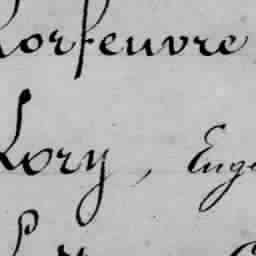 Lorfeuvre
Lory, Eug